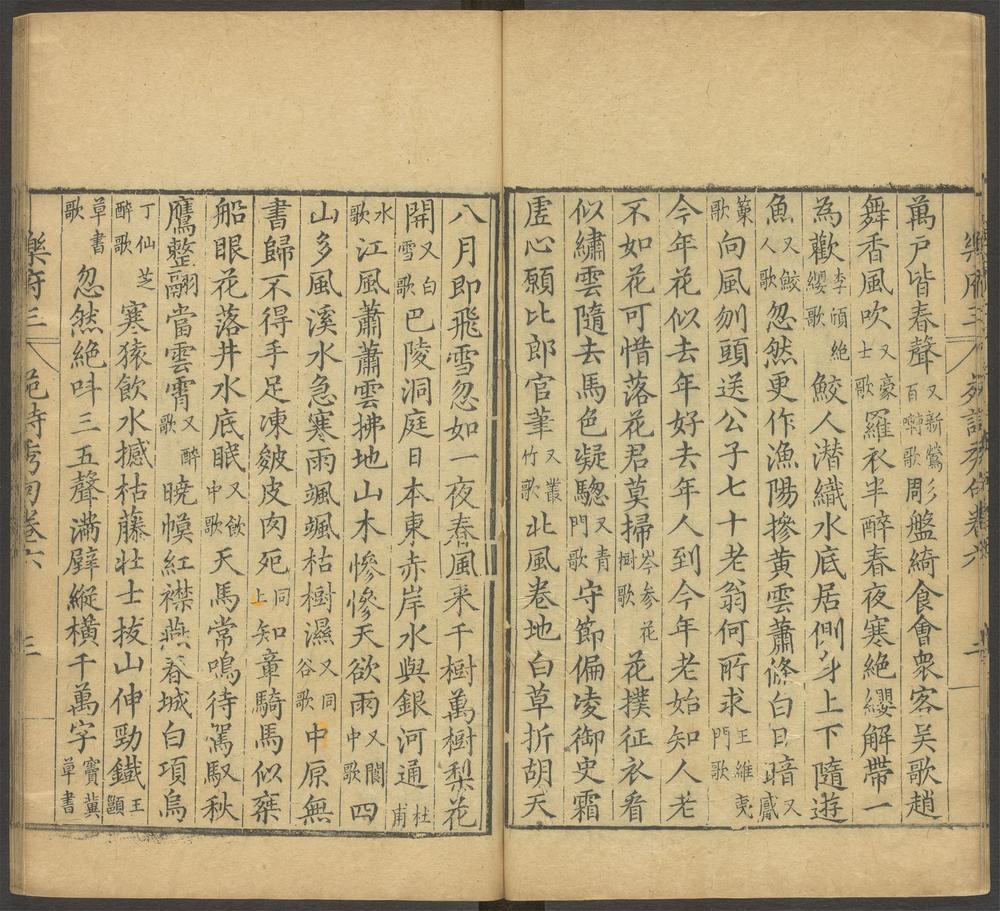 萬戶皆春聲又新鶯百囀歌彫盤綺食會衆客吳歌趙
舞香風吹又豪士歌羅衣半醉春夜寒絶纓解帶一
為歡李頎絶纓歌鮫人潜織水底居側身上下隨遊
魚又鮫人歌忽然更作漁陽摻黃雲蕭條白日暗又觱
篥歌向風刎頭送公子七十老翁何所求王維夷門歌
今年花似去年好去年人到今年老始知人老
不如花可惜落花君莫掃岑參花樹歌花撲征衣看
似繡雲隨去馬色凝驄又青門歌守節偏凌御史霜
虛心願比郎官筆又叢竹歌北風卷地白草折胡天
八月即飛雪忽如一夜春風来千樹萬樹梨花
開又白雪歌巴陵洞庭日本東赤岸水與銀河通杜甫
水歌江風蕭蕭雲拂地山木慘慘天欲雨又閬中歌四
山多風溪水急寒雨颯颯枯樹濕又同谷歌中原無
書歸不得手足凍皴皮肉死同上知章騎馬似乘
船眼花落井水底眠又飲中歌天馬常鳴待駕馭秋
鷹整翮當雲霄又醉歌曉幙紅襟燕春城白項烏
丁仙芝醉歌寒猿飲水撼枯藤壯士拔山伸勁鐵王顒
草書歌忽然絶呌三五聲滿壁縱橫千萬字竇冀草書
樂府三 苑詩秀句卷六 三